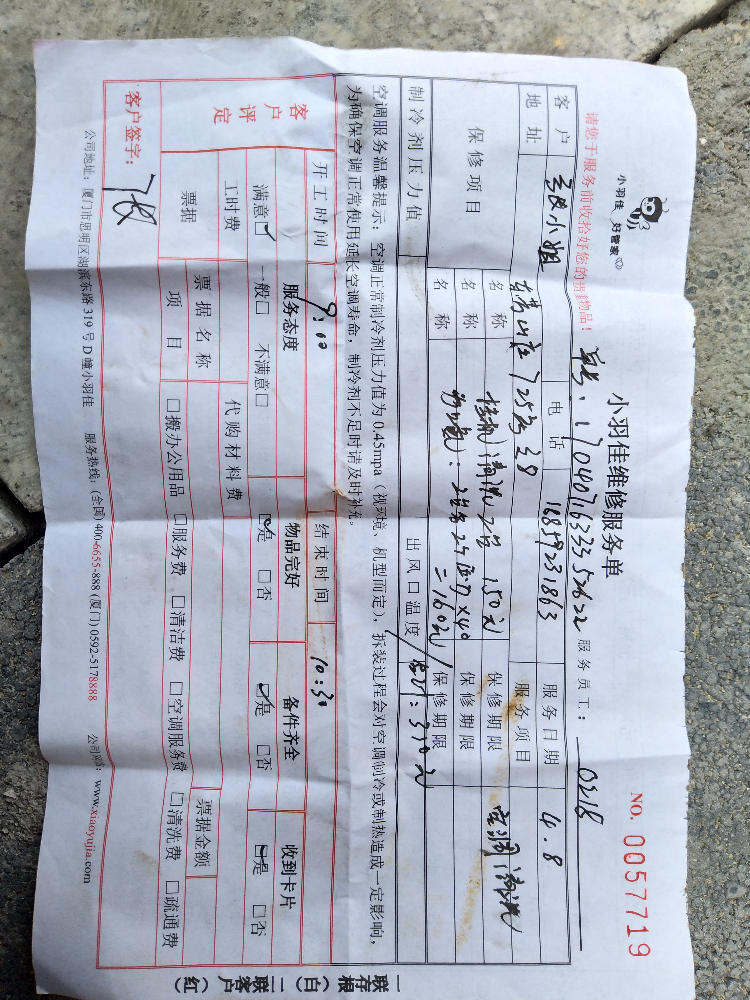 小羽佳 好管家
小羽佳维修服务单
NO. 0057719
请您于服务前收拾好您的贵重物品!
单号: 服务员工: 0218
客户 小姐 电话 18859231863 服务日期 4.8
地址 山庄 725号 服务项目 空调清洗
保修项目 名称 挂机清洗2台 150元 保修期限
名称 保修期限
名称 =160元 保修期限
制冷剂压力值 出风口温度 总计:310元
空调服务温馨提示:空调正常制冷剂压力值为0.45mpa(视环境、机型而定),拆装过程会对空调制冷或制热造成一定影响,
为确保空调正常使用延长空调寿命,制冷剂不足时请及时补充。
开工时间 9:10 结束时间 10:30
客户评定 服务态度 物品完好 备件齐全 收到卡片
满意☑ 一般□ 不满意□ ☑是 □否 ☑是 □否 ☑是 □否
工时费 代购材料费
票据 票据名称 票据金额
项目 □搬办公用品 □服务费 □清洁费 □空调服务费 □清洗费 □疏通费
客户签字:
公司地址:厦门市思明区湖滨东路319号D幢小羽佳 服务热线:(全国)400-6655-888 (厦门)0592-5178888 公司网址:www.xiaoyujia.com
一联存根(白) 二联客户(红)